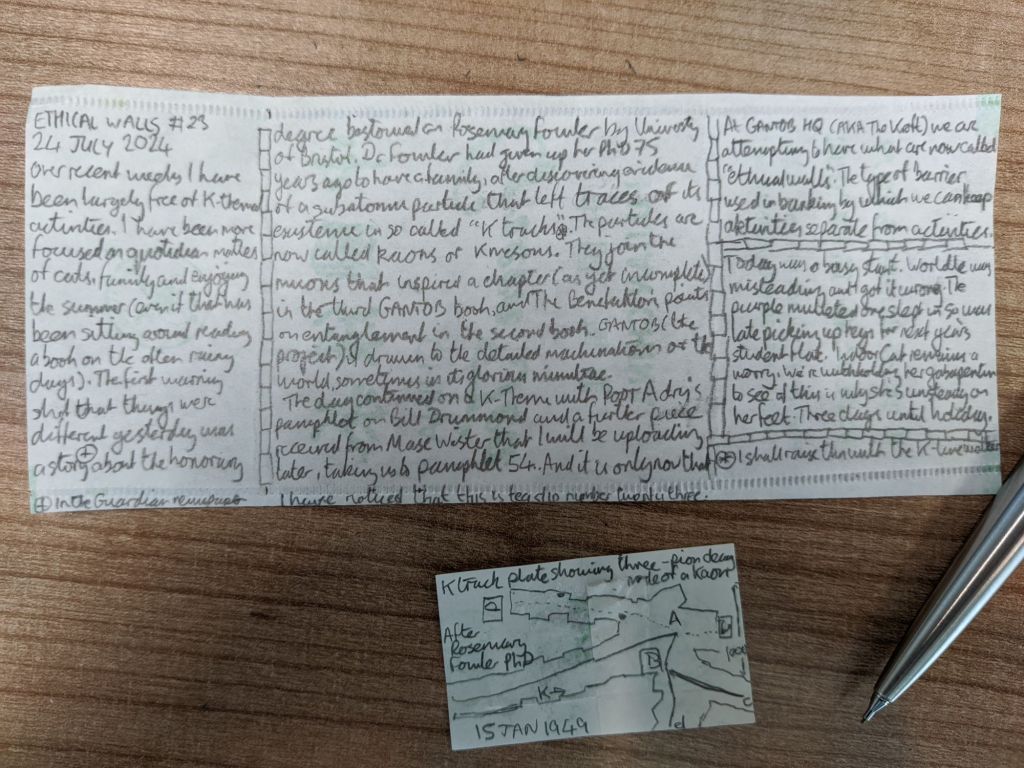 ETHICAL WALLS #23
24 JULY 2024
Over recent weeks I have
been largely free of K-themed
activities. I have been more
focused on quotidian matters
of cats, family and enjoying
the summer (even if that has
been sitting around reading
a book on the often rainy
days). The first warning
shot that things were
different yesterday was
a story ⊕ about the honorary
⊕ In the Guardian newspaper
degree bestowed on Rosemary Fowler by University
of Bristol. Dr Fowler had given up her PhD 75
years ago to have a family, after discovering evidence
of a subatomic particle that left traces of its
existence in so called "K tracks". The particles are
now called kaons or K mesons. They join the
muons that inspired a chapter (as yet incomplete)
in the third GANTOB book, and The Benefaktor's points
on entanglement in the second book. GANTOB (the
project) is drawn to the detailed machinations of the
world, sometimes in its glorious minutiae.
The day continued on a K-Theme with Popt Adry's
pamphlet on Bill Drummond and a further piece
received from Mase Wester that I will be uploading
later, taking us to pamphlet 54. And it is only now that
I have noticed that this is teaclip number twenty three.
At GANTOB HQ (AKA The Kott) we are
attempting to have what are now called
"ethical walls". The type of barrier
used in banking by which we can keep
aktivities separate from activities.
Today was a busy start. Worldle was
misleading and I got it wrong. The
purple mulleted one slept in so was
late picking up keys for next year's
student flat. Indoor Cat remains a
worry. We're withholding her gabapentin
to see if this is why she's unsteady on
her feet. Three days until holiday.
⊕ I shall raise this with the K-line
K track plate showing three-pion decay
mode of a kaon
P
A
After
Rosemary
Fowler PhD
K→
d
15 JAN 1949